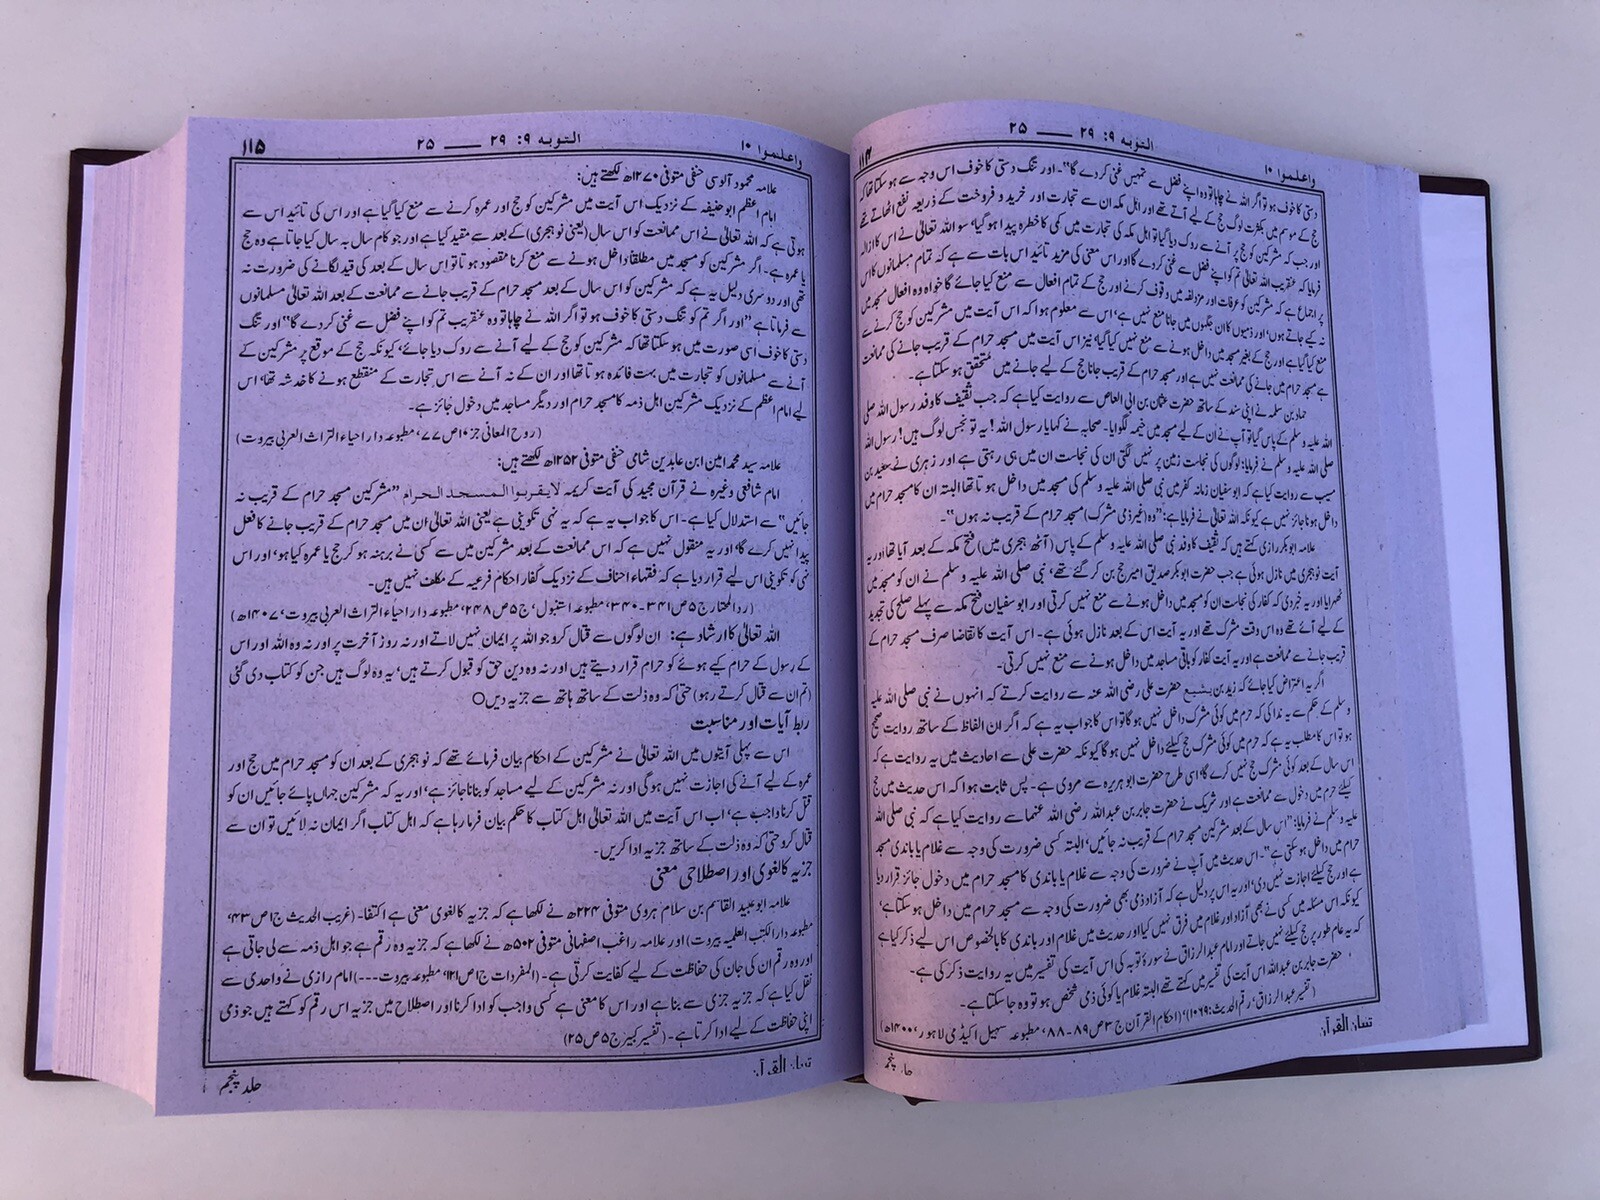 واعلموا ۱۰
التوبه ۹: ۲۹ ــــ ۲۵
۱۱۴
دستی کا خوف ہو تو اگر اللہ نے چاہا تو وہ اپنے فضل سے تمہیں غنی کر دے گا"۔ اور تنگ دستی کا خوف اس وجہ سے ہو سکتا تھا کہ
حج کے موسم میں بکثرت لوگ حج کے لیے آتے تھے اور اہل مکہ ان سے تجارت اور خرید و فروخت کے ذریعہ نفع اٹھاتے تھے
اور جب کہ مشرکین کو حج پر آنے سے روک دیا گیا تو اہل مکہ کی تجارت میں کمی کا خطرہ پیدا ہو گیا' سو اللہ تعالیٰ نے اس کا ازالہ
فرمایا کہ عنقریب اللہ تعالیٰ تم کو اپنے فضل سے غنی کر دے گا اور اس معنی کی مزید تائید اس بات سے ہے کہ تمام مسلمانوں کا اس
پر اجماع ہے کہ مشرکین کو عرفات اور مزدلفہ میں وقوف کرنے اور حج کے تمام افعال سے منع کیا جائے گا خواہ وہ افعال مسجد میں
نہ کیے جاتے ہوں' اور ذمیوں کا ان جگہوں میں جانا منع نہیں ہے' اس سے معلوم ہوا کہ اس آیت میں مشرکین کو حج کرنے سے
منع کیا گیا ہے اور حج کے بغیر مسجد میں داخل ہونے سے منع نہیں کیا گیا' نیز اس آیت میں مسجد حرام کے قریب جانے کی ممانعت
ہے مسجد حرام میں جانے کی ممانعت نہیں ہے اور مسجد حرام کے قریب جانا حج کے لیے جانے میں متحقق ہو سکتا ہے۔
حماد بن سلمہ نے اپنی سند کے ساتھ حضرت عثمان بن ابی العاص سے روایت کیا ہے کہ جب ثقیف کا وفد رسول اللہ صلی
اللہ علیہ وسلم کے پاس گیا تو آپ نے ان کے لیے مسجد میں خیمہ لگوایا۔ صحابہ نے کہا یا رسول اللہ! یہ تو نجس لوگ ہیں! رسول اللہ
صلی اللہ علیہ وسلم نے فرمایا: لوگوں کی نجاست زمین پر نہیں لگتی ان کی نجاست ان میں ہی رہتی ہے اور زہری نے سعید بن
مسیب سے روایت کیا ہے کہ ابو سفیان زمانہ کفر میں نبی صلی اللہ علیہ وسلم کی مسجد میں داخل ہو تا تھا البتہ ان کا مسجد حرام میں
داخل ہونا جائز نہیں ہے کیونکہ اللہ تعالیٰ نے فرمایا ہے: "وہ (غیر ذمی مشرک) مسجد حرام کے قریب نہ ہوں"۔
علامہ ابو بکر رازی کہتے ہیں کہ ثقیف کا وفد نبی صلی اللہ علیہ وسلم کے پاس (آٹھ ہجری میں) فتح مکہ کے بعد آیا تھا اور یہ
آیت نو ہجری میں نازل ہوئی ہے جب حضرت ابو بکر صدیق امیر حج بن کر گئے تھے' نبی صلی اللہ علیہ وسلم نے ان کو مسجد میں
ٹھہرایا اور یہ خبر دی کہ کفار کی نجاست ان کو مسجد میں داخل ہونے سے منع نہیں کرتی اور ابو سفیان فتح مکہ سے پہلے صلح کی تجدید
کے لیے آئے تھے وہ اس وقت مشرک تھے اور یہ آیت اس کے بعد نازل ہوئی ہے۔ اس آیت کا تقاضا صرف مسجد حرام کے
قریب جانے سے ممانعت ہے اور یہ آیت کفار کو باقی مساجد میں داخل ہونے سے منع نہیں کرتی۔
اگر یہ اعتراض کیا جائے کہ زید بن یشیع حضرت علی رضی اللہ عنہ سے روایت کرتے کہ انہوں نے نبی صلی اللہ علیہ
وسلم کے حکم سے یہ ندا کی کہ حرم میں کوئی مشرک داخل نہیں ہو گا تو اس کا جواب یہ ہے کہ اگر ان الفاظ کے ساتھ روایت صحیح
ہو تو اس کا مطلب یہ ہے کہ حرم میں کوئی مشرک حج کیلئے داخل نہیں ہو گا کیونکہ حضرت علی سے احادیث میں یہ روایت ہے کہ
اس سال کے بعد کوئی مشرک حج نہیں کرے گا' اسی طرح حضرت ابو ہریرہ سے مروی ہے۔ پس ثابت ہوا کہ اس حدیث میں حج
کیلئے حرم میں دخول سے ممانعت ہے اور شریک نے حضرت جابر بن عبداللہ رضی اللہ عنہما سے روایت کیا ہے کہ نبی صلی اللہ
علیہ وسلم نے فرمایا: "اس سال کے بعد مشرکین مسجد حرام کے قریب نہ جائیں' البتہ کسی ضرورت کی وجہ سے غلام یا باندی مسجد
حرام میں داخل ہو سکتی ہے"۔ اس حدیث میں آپ نے ضرورت کی وجہ سے غلام یا باندی کا مسجد حرام میں دخول جائز قرار دیا
ہے اور حج کیلئے اجازت نہیں دی' اور یہ اس پر دلیل ہے کہ آزاد ذمی بھی ضرورت کی وجہ سے مسجد حرام میں داخل ہو سکتا ہے'
کیونکہ اس مسئلہ میں کسی نے بھی آزاد اور غلام میں فرق نہیں کیا اور حدیث میں غلام اور باندی کا بالخصوص اس لیے ذکر کیا ہے
کہ یہ عام طور پر حج کیلئے نہیں جاتے اور امام عبدالرزاق نے سورۂ توبہ کی اس آیت کی تفسیر میں یہ روایت ذکر کی ہے۔
حضرت جابر بن عبداللہ اس آیت کی تفسیر میں کہتے تھے البتہ غلام یا کوئی ذمی شخص ہو تو وہ جا سکتا ہے۔
(تفسیر عبدالرزاق' رقم الحدیث: ۱۰۶۹)' (احکام القرآن ج ۳ ص ۸۹-۸۸' مطبوعہ سہیل اکیڈمی لاہور' ۱۴۰۰ھ)
تبیان القرآن
جلد پنجم
واعلموا ۱۰
التوبه ۹: ۲۹ ــــ ۲۵
۱۱۵
علامہ محمود آلوسی حنفی متوفی ۱۲۷۰ھ لکھتے ہیں:
امام اعظم ابو حنیفہ کے نزدیک اس آیت میں مشرکین کو حج اور عمرہ کرنے سے منع کیا گیا ہے اور اس کی تائید اس سے
ہوتی ہے کہ اللہ تعالیٰ نے اس ممانعت کو اس سال (یعنی نو ہجری) کے بعد سے مقید کیا ہے اور جو کام سال بہ سال کیا جاتا ہے وہ حج
یا عمرہ ہے۔ اگر مشرکین کو مسجد میں مطلقاً داخل ہونے سے منع کرنا مقصود ہوتا تو اس سال کے بعد کی قید لگانے کی ضرورت نہ
تھی اور دوسری دلیل یہ ہے کہ مشرکین کو اس سال کے بعد مسجد حرام کے قریب جانے سے ممانعت کے بعد اللہ تعالیٰ مسلمانوں
سے فرماتا ہے "اور اگر تم کو تنگ دستی کا خوف ہو تو اگر اللہ نے چاہا تو وہ عنقریب تم کو اپنے فضل سے غنی کر دے گا" اور تنگ
دستی کا خوف اسی صورت میں ہو سکتا تھا کہ مشرکین کو حج کے لیے آنے سے روک دیا جائے' کیونکہ حج کے موقع پر مشرکین کے
آنے سے مسلمانوں کو تجارت میں بہت فائدہ ہوتا تھا اور ان کے نہ آنے سے اس تجارت کے منقطع ہونے کا خدشہ تھا' اس
لیے امام اعظم کے نزدیک مشرکین اہل ذمہ کا مسجد حرام اور دیگر مساجد میں دخول جائز ہے۔
(روح المعانی جز ۱۰ ص ۷۷' مطبوعہ دار احیاء التراث العربی بیروت)
علامہ سید محمد امین ابن عابدین شامی حنفی متوفی ۱۲۵۲ھ لکھتے ہیں:
امام شافعی وغیرہ نے قرآن مجید کی آیت کریمہ لا یقربوا المسجد الحرام "مشرکین مسجد حرام کے قریب نہ
جائیں" سے استدلال کیا ہے۔ اس کا جواب یہ ہے کہ یہ نہی تکوینی ہے یعنی اللہ تعالیٰ ان میں مسجد حرام کے قریب جانے کا فعل
پیدا نہیں کرے گا' اور یہ منقول نہیں ہے کہ اس ممانعت کے بعد مشرکین میں سے کسی نے برہنہ ہو کر حج یا عمرہ کیا ہو' اور اس
نہی کو تکوینی اس لیے قرار دیا ہے کہ فقہاء احناف کے نزدیک کفار احکام فرعیہ کے مکلف نہیں ہیں۔
(رد المختار ج ۵ ص ۳۴۱-۳۴۰' مطبوعہ استنبول' ج ۵ ص ۲۴۸' مطبوعہ دار احیاء التراث العربی بیروت' ۱۴۰۷ھ)
اللہ تعالیٰ کا ارشاد ہے: ان لوگوں سے قتال کرو جو اللہ پر ایمان نہیں لاتے اور نہ روز آخرت پر اور نہ وہ اللہ اور اس
کے رسول کے حرام کیے ہوئے کو حرام قرار دیتے ہیں اور نہ وہ دین حق کو قبول کرتے ہیں' یہ وہ لوگ ہیں جن کو کتاب دی گئی
(تم ان سے قتال کرتے رہو) حتیٰ کہ وہ ذلت کے ساتھ ہاتھ سے جزیہ دیں○
ربط آیات اور مناسبت
اس سے پہلی آیتوں میں اللہ تعالیٰ نے مشرکین کے احکام بیان فرمائے تھے کہ نو ہجری کے بعد ان کو مسجد حرام میں حج اور
عمرہ کے لیے آنے کی اجازت نہیں ہو گی اور نہ مشرکین کے لیے مساجد کو بنانا جائز ہے' اور یہ کہ مشرکین جہاں پائے جائیں ان کو
قتل کرنا واجب ہے' اب اس آیت میں اللہ تعالیٰ اہل کتاب کا حکم بیان فرما رہا ہے کہ اہل کتاب اگر ایمان نہ لائیں تو ان سے
قتال کرو حتیٰ کہ وہ ذلت کے ساتھ جزیہ ادا کریں۔
جزیہ کا لغوی اور اصطلاحی معنی
علامہ ابو عبید القاسم بن سلام ہروی متوفی ۲۲۴ھ نے لکھا ہے کہ جزیہ کا لغوی معنی ہے اکتفا۔ (غریب الحدیث ج ۱ ص ۴۳'
مطبوعہ دار الکتب العلمیہ بیروت) اور علامہ راغب اصفہانی متوفی ۵۰۲ھ نے لکھا ہے کہ جزیہ وہ رقم ہے جو اہل ذمہ سے لی جاتی ہے
اور وہ رقم ان کی جان کی حفاظت کے لیے کفایت کرتی ہے۔ (المفردات ج ۱ ص ۱۲۱' مطبوعہ بیروت---) امام رازی نے واحدی سے
نقل کیا ہے کہ جزیہ جزی سے بنا ہے اور اس کا معنی ہے کسی واجب کو ادا کرنا اور اصطلاح میں جزیہ اس رقم کو کہتے ہیں جو ذمی
اپنی حفاظت کے لیے ادا کرتا ہے۔ (تفسیر کبیر ج ۵ ص ۲۵)
تبیان القرآن
جلد پنجم